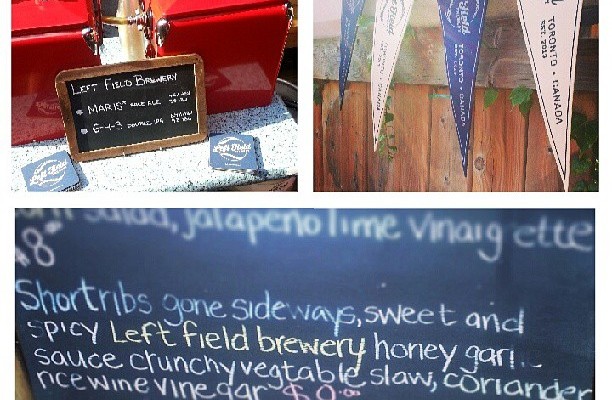 LEFT FIELD BREWERY
MARIS* PALE ALE
6-4-3 DOUBLE IPA
Left Field
Left Field
TORONTO • CANADA
TORONTO • CANADA
EST. 2013
salad, jalapeño lime vinaigette
$8
Shortribs gone sideways, sweet and
spicy Left field brewery honey garl
sauce crunchy vegtable slaw, coriander
rice wine vinegar